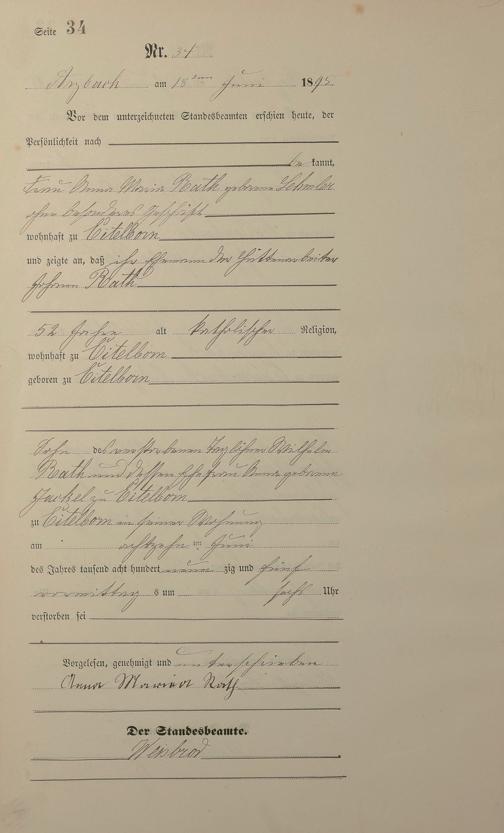 Seite 34
Nr. 34
Arzbach am 18ten Juni 1895
Vor dem unterzeichneten Standesbeamten erschien heute, der
Persönlichkeit nach
be kannt,
Frau Anna Maria Rath geborene Lehmler
ohne besonderes Geschäft
wohnhaft zu Eitelborn
und zeigte an, daß ihr Ehemann der Hüttenarbeiter
Johann Rath
52 Jahre alt katholischer Religion,
wohnhaft zu Eitelborn
geboren zu Eitelborn
Sohn des verstorbenen Taglöhner Wilhelm
Rath und dessen Ehefrau Anna geborene
zu Eitelborn
zu Eitelborn in seiner Wohnung
am achtzehn ten Juni
des Jahres tausend acht hundert neun zig und fünf
vormittag s um Uhr
verstorben sei
Vorgelesen, genehmigt und unterschrieben
Anna Maria Rath
Der Standesbeamte.
Weisbrod